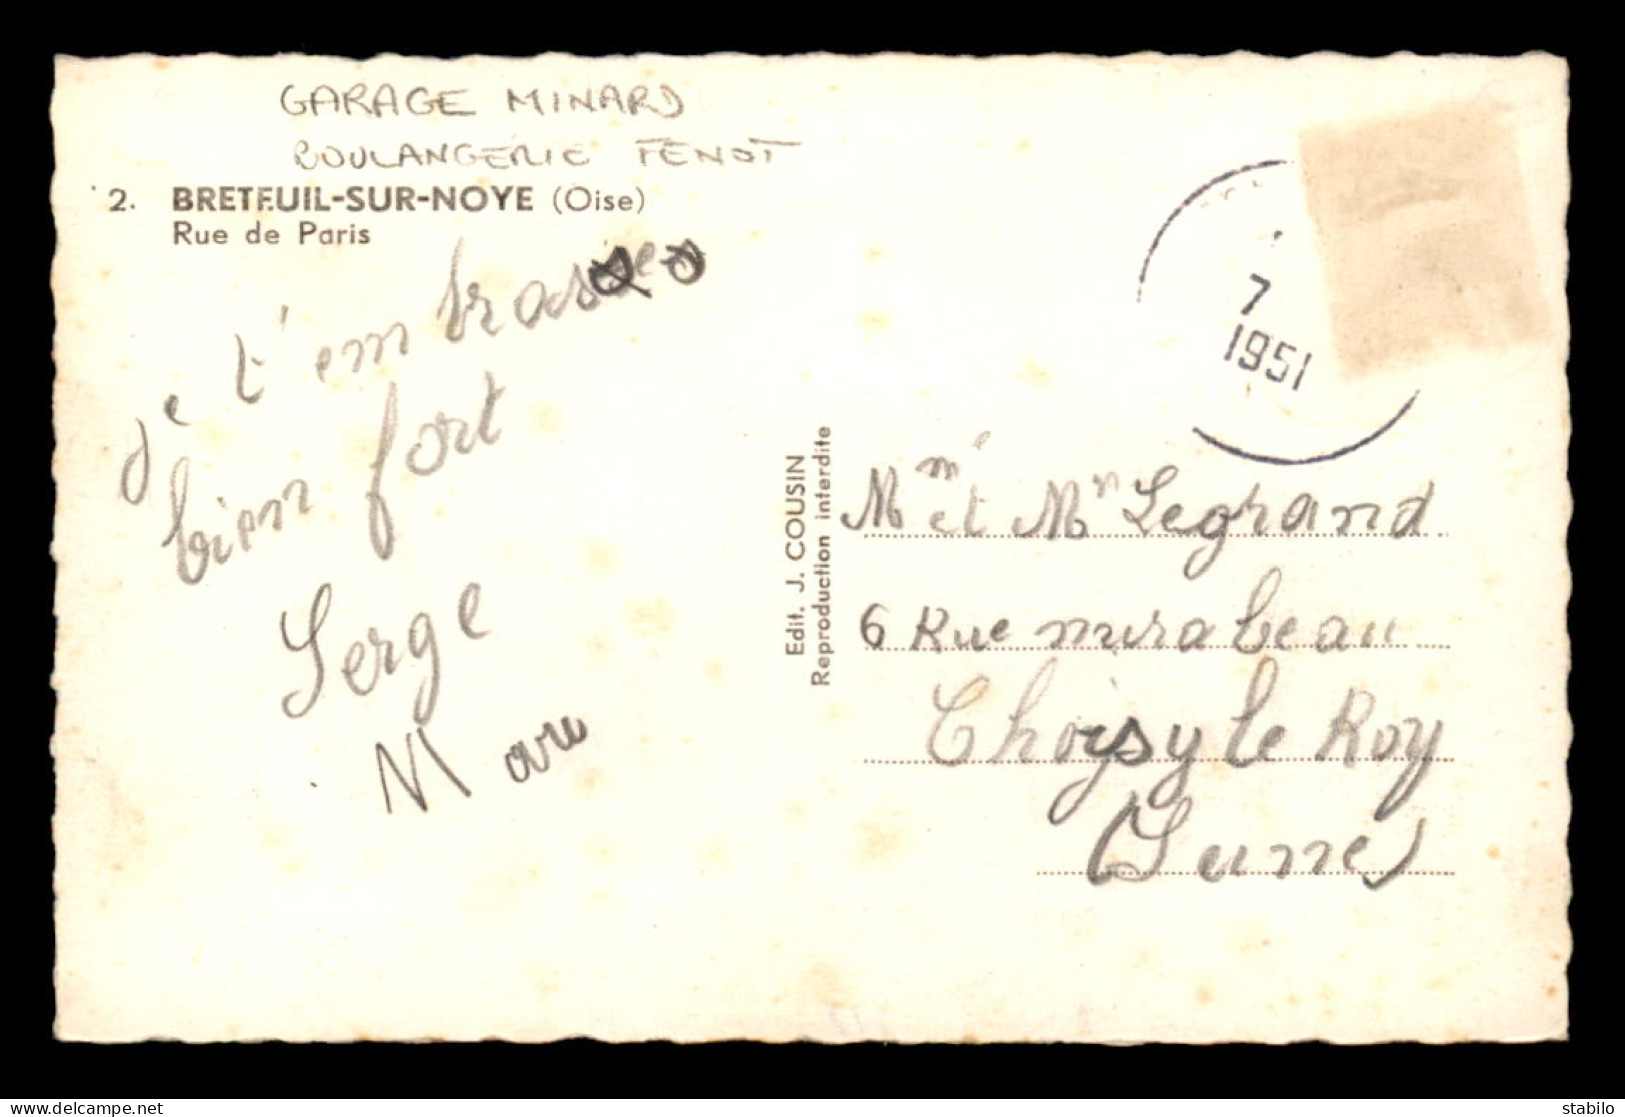 GARAGE MINARD
BOULANGERIE FENOT
2. BRETEUIL-SUR-NOYE (Oise)
Rue de Paris
je t'embrasses
bien fort
Serge
7
1951
Edit. J. COUSIN
Reproduction interdite
Mm et Mr Legrand
6 Rue mirabeau
Choysy le Roy
(Seine)
stabilo